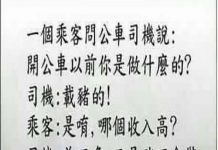 一個乘客問公車司機說:
開公車以前你是做什麼的?
司機:載豬的!
乘客:是唷,哪個收入高?